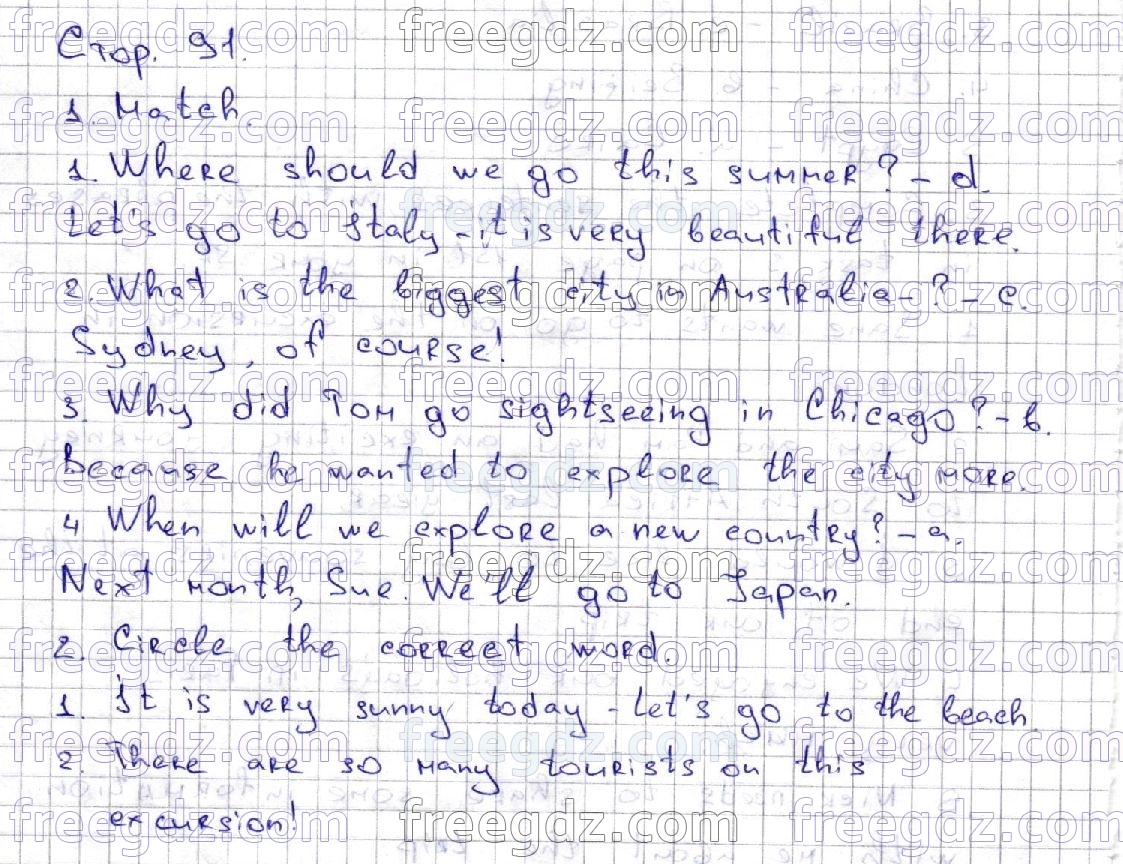 Стор. 91.
1. Match.
1. Where should we go this summer? – d.
Let's go to Italy – it is very beautiful there.
2. What is the biggest city in Australia - ? – c.
Sydney, of course!
3. Why did Tom go sightseeing in Chicago? – b.
Because he wanted to explore the city more.
4 When will we explore a new country? – a.
Next month, Sue. We'll go to Japan.
2. Circle the correct word.
1. It is very sunny today – let's go to the beach.
2. There are so many tourists on this
excursion!
freegdz.com